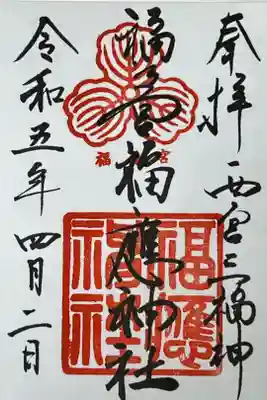 奉拝 西宮三福神
福之宮福應神社
令和五年四月二日
福 宮